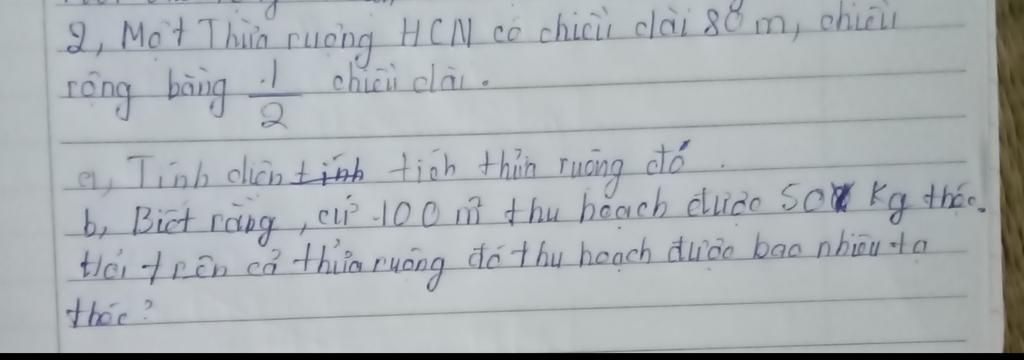 2, Một Thửa ruộng HCN có chiều dài 80 m, chiều
rộng bằng 1/2 chiều dài.
a, Tính diện tính tích thửa ruộng đó.
b, Biết rằng, cứ 100 m² thu hoạch được 50 kg thóc.
Hỏi trên cả thửa ruộng đó thu hoạch được bao nhiêu tạ
thóc?